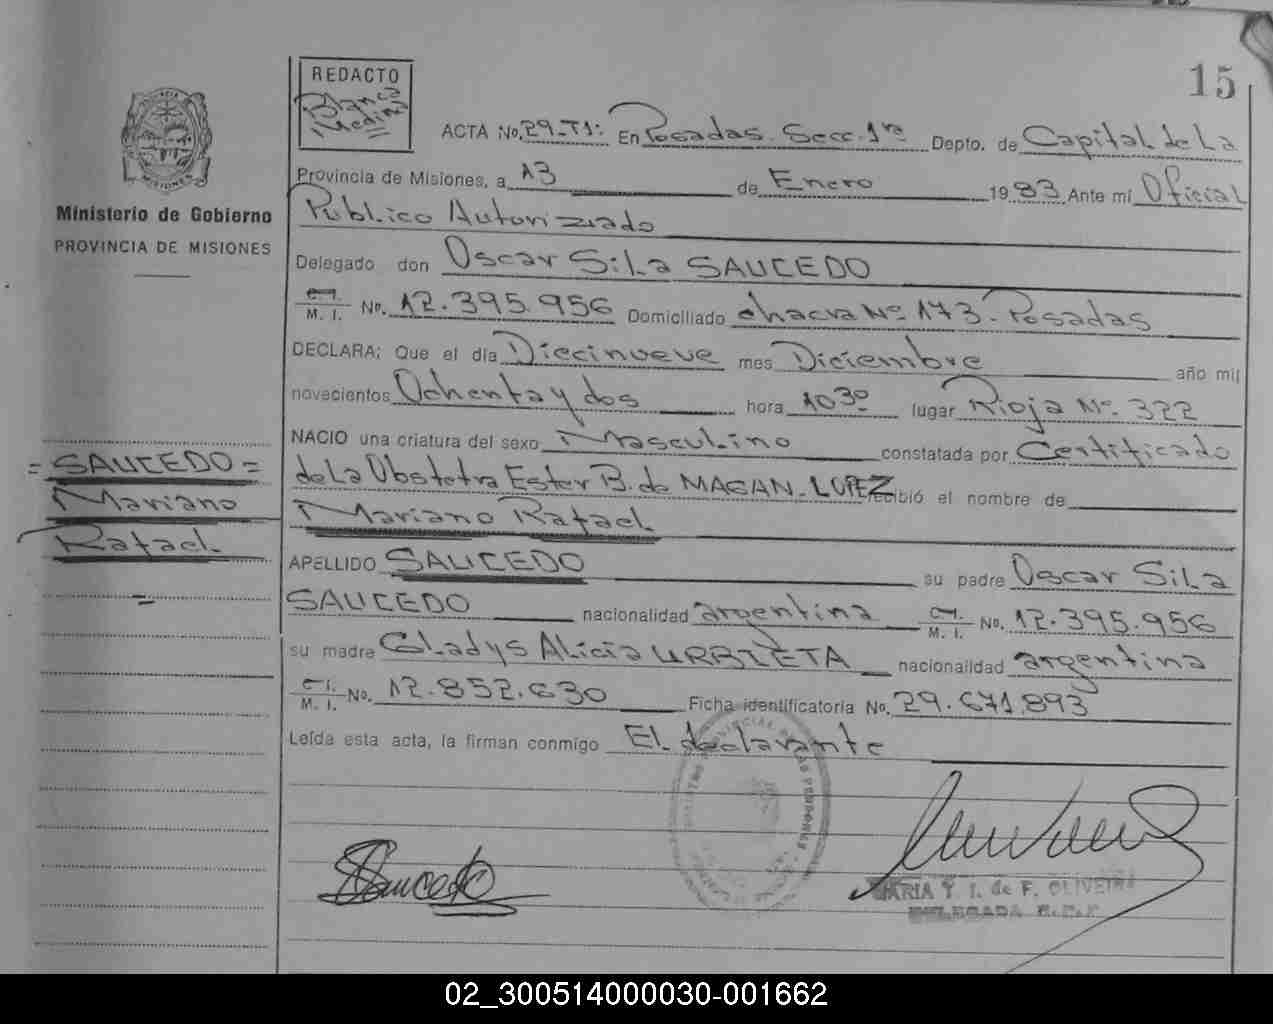 15
REDACTO
Blanca
Medina
ACTA No. 29-T1: En Posadas. Secc. 1ra Depto. de Capital de La
Provincia de Misiones, a 13 de Enero 1983 Ante mi Oficial
Publico Autorizado
Delegado don Oscar Sila SAUCEDO
C.I. M. I. No. 12.395.956 Domiciliado chacra Nº 173. Posadas
DECLARA: Que el día Diecinueve mes Diciembre año mil
novecientos Ochenta y dos hora 1030 lugar Rioja Nº. 322
NACIO una criatura del sexo Masculino constatada por Certificado
de La Obstetra Ester B. de MAGAN-LOPEZ recibió el nombre de
Mariano Rafael
APELLIDO SAUCEDO su padre Oscar Sila
SAUCEDO nacionalidad argentina C.I. M. I. No. 12.395.956
su madre Gladys Alicia URBIETA nacionalidad argentina
C.I. M. I. No. 12.852.630 Ficha identificatoria No. 29.671.893
Leída esta acta, la firman conmigo El declarante
Saucedo
MARIA Y. I. de F. OLIVEIRA
DELEGADA R.P.P.
PROVINCIA
MISIONES
Ministerio de Gobierno
PROVINCIA DE MISIONES
= SAUCEDO =
Mariano
Rafael
02_300514000030-001662